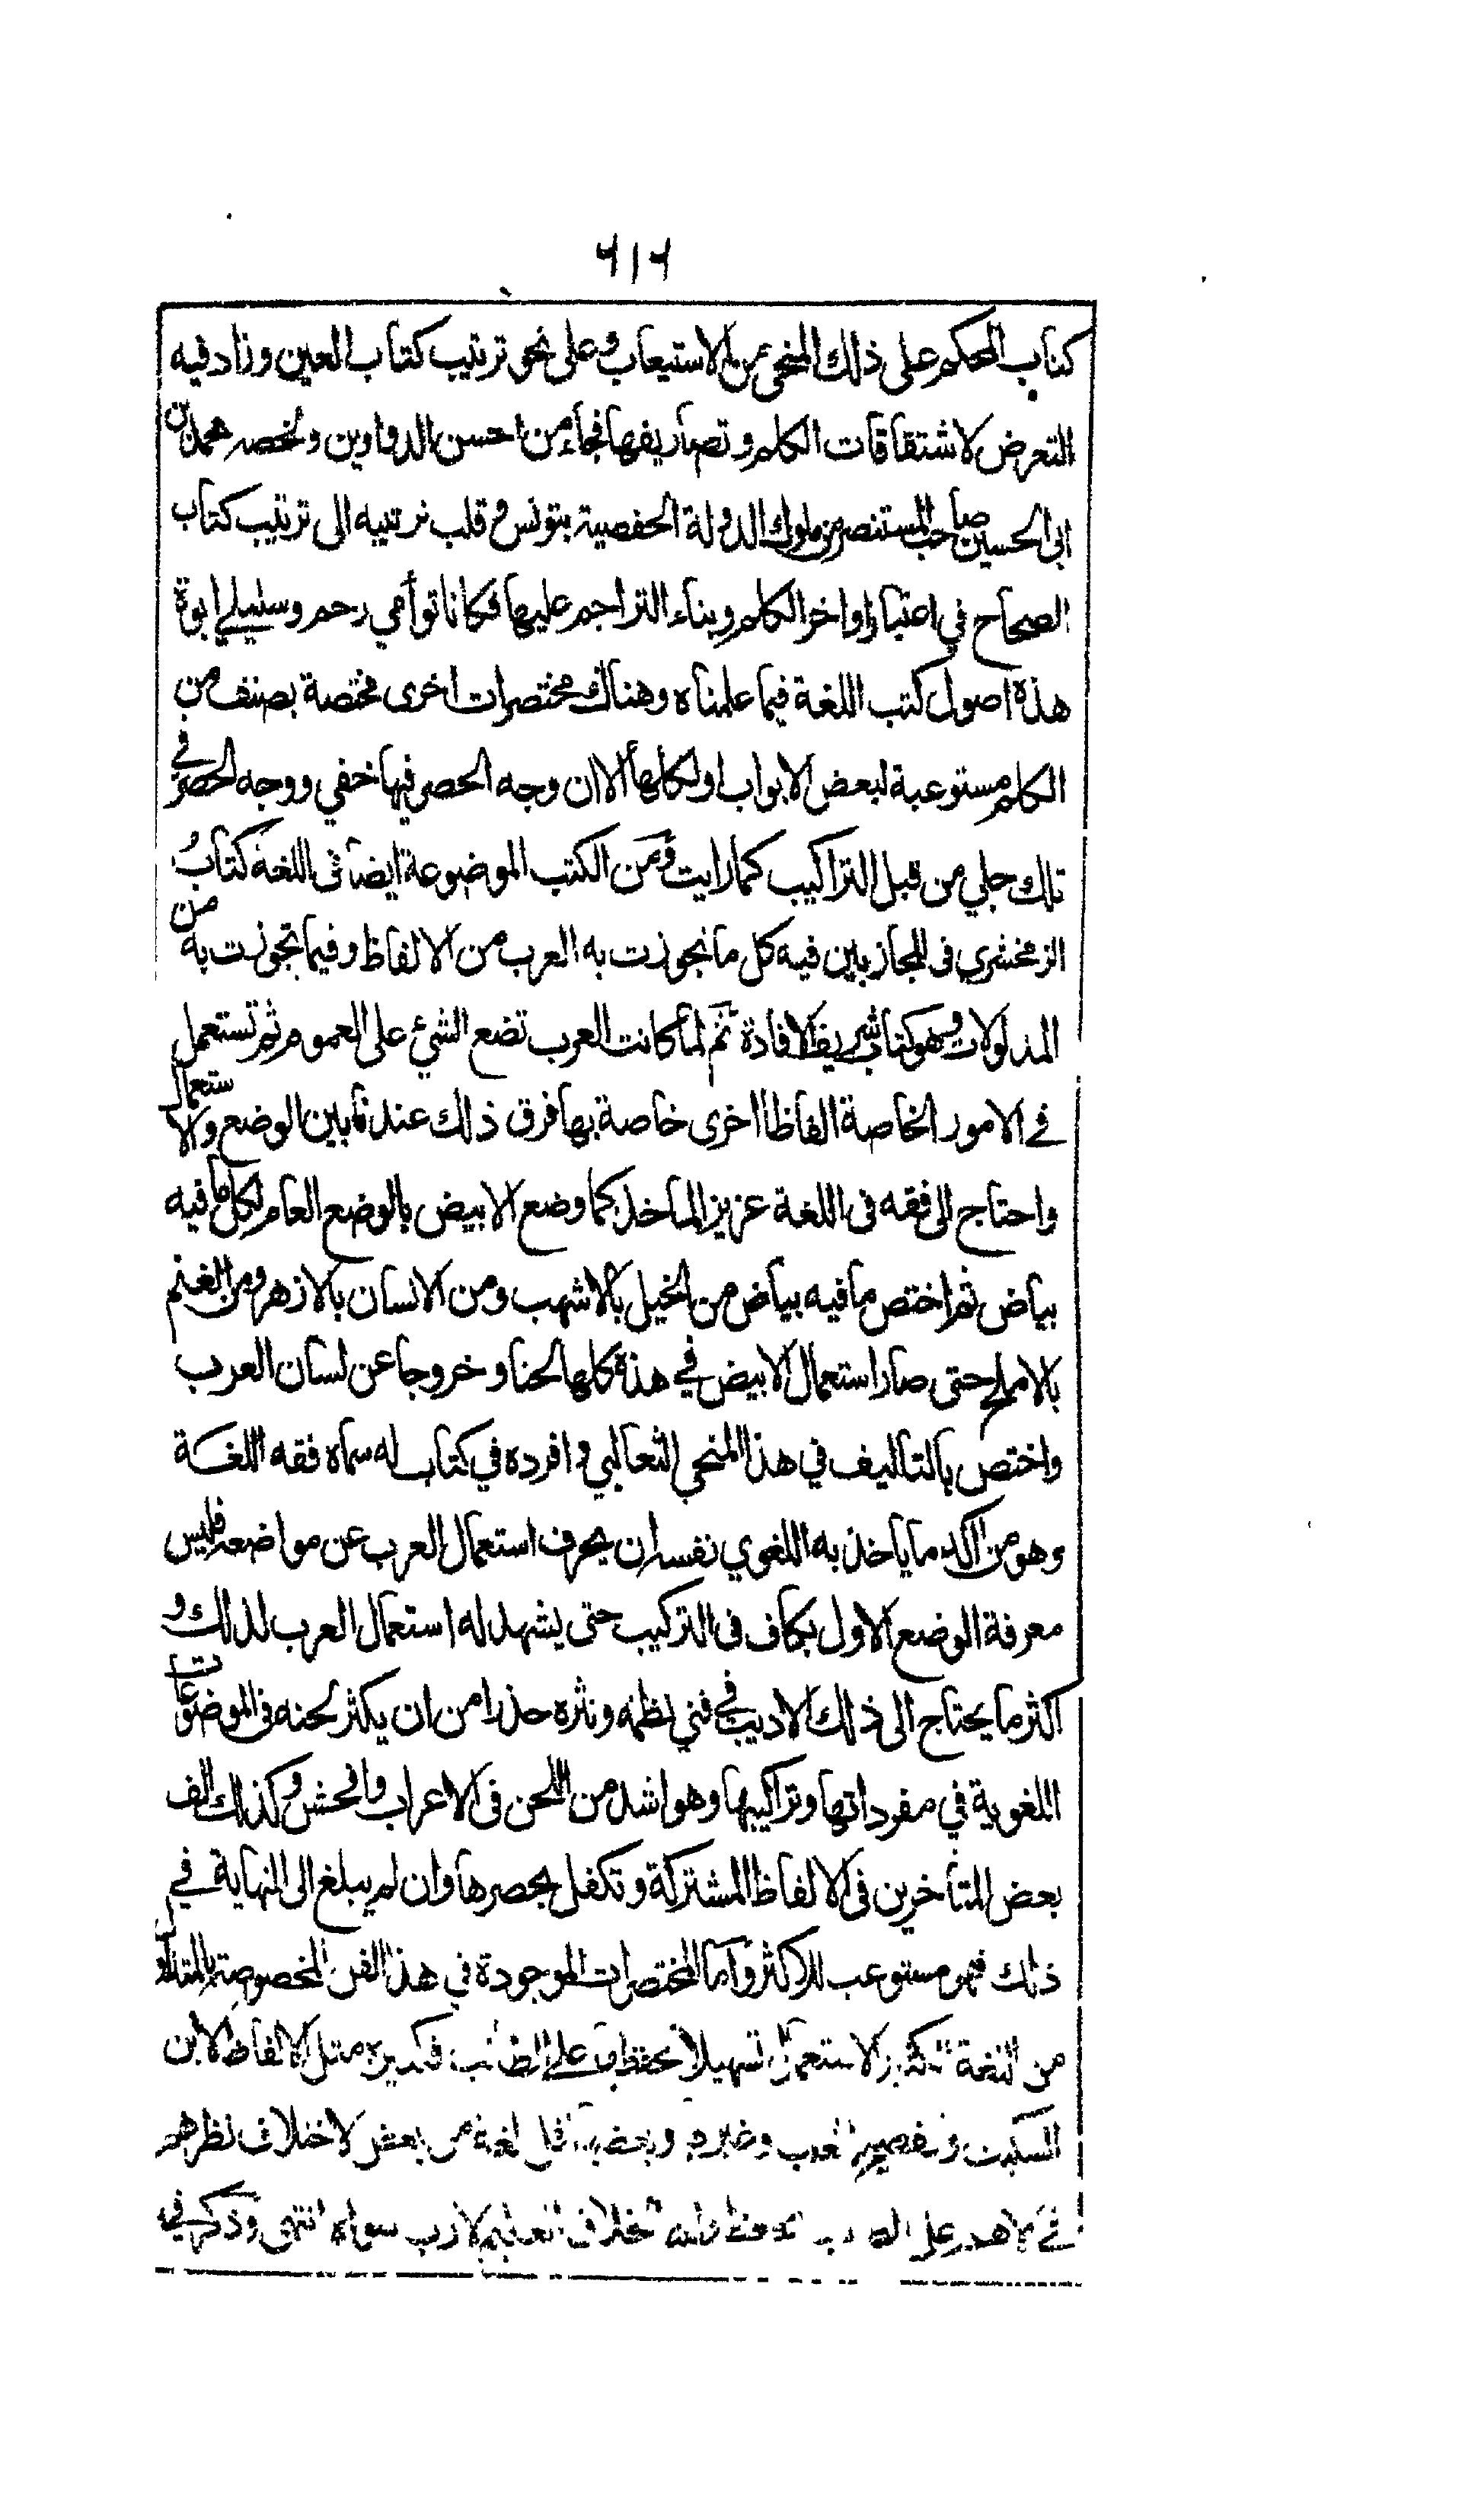 ٦١٦
كتاب المحكم على ذلك المنحى من الاستيعاب وعلى نحو ترتيب كتاب العين وزاد فيه
التعرض لاشتقاقات الكلم وتصاريفها فجاء من احسن الدواوين ولخصه محمد بن
ابي الحسين صاحب المستنصر من ملوك الدولة الحفصية بتونس وقلب ترتيبه الى ترتيب كتاب
الصحاح في اعتبار اواخر الكلم وبناء التراجم عليها فكانا توأمي رحم وسليلي ابوة
هذه اصول كتب اللغة فيما علمناه وهناك مختصرات اخرى مختصة بصنف من
الكلم مستوعبة لبعض الابواب او لكلها الا ان وجه الحصر فيها خفي ووجه الحصر في
تلك جلي من قبل التراكيب كما رايت ومن الكتب الموضوعة ايضا في اللغة كتاب
الزمخشري في المجاز بين فيه كل ما تجوزت به العرب من الالفاظ وفيما تجوزت به من
المدلولات وهو كتاب شريف الافادة ثم لما كانت العرب تضع الشيء على العموم ثم تستعمل
في الامور الخاصة الفاظا اخرى خاصة بها فرق ذلك عندنا بين الوضع والاستعمال
واحتاج الى فقه في اللغة عزيز الماخذ كما وضع الابيض بالوضع العام لكل ما فيه
بياض ثم اختص ما فيه بياض من الخيل بالاشهب ومن الانسان بالازهر ومن الغنم
بالاملح حتى صار استعمال الابيض في هذه كلها لحنا وخروجا عن لسان العرب
واختص بالتاليف في هذا المنحى الثعالبي وافرده في كتاب له سماه فقه اللغة
وهو من اكد ما ياخذ به اللغوي نفسه ان يحرف استعمال العرب عن مواضعه فليس
معرفة الوضع الاول بكاف في التركيب حتى يشهد له استعمال العرب لذلك و
اكثر ما يحتاج الى ذلك الاديب في فني نظمه ونثره حذرا من ان يكثر لحنه في الموضوعات
اللغوية في مفرداتها وتراكيبها وهو اشد من اللحن في الاعراب وافحش وكذلك الف
بعض المتأخرين في الالفاظ المشتركة وتكفل بحصرها وان لم يبلغ الى النهاية في
ذلك فهو مستوعب للاكثر واما المختصرات الموجودة في هذا الفن المخصوصة بالمتداول
من اللغة الاستعمال تسهيلا لحفظها على الطالب فكثيرة مثل الالفاظ لابن
السكيت والفصيح وغيرهما وبعضها اقل لغة من بعض لاختلاف نظرهم
في الاهم على انتهى وذكر في